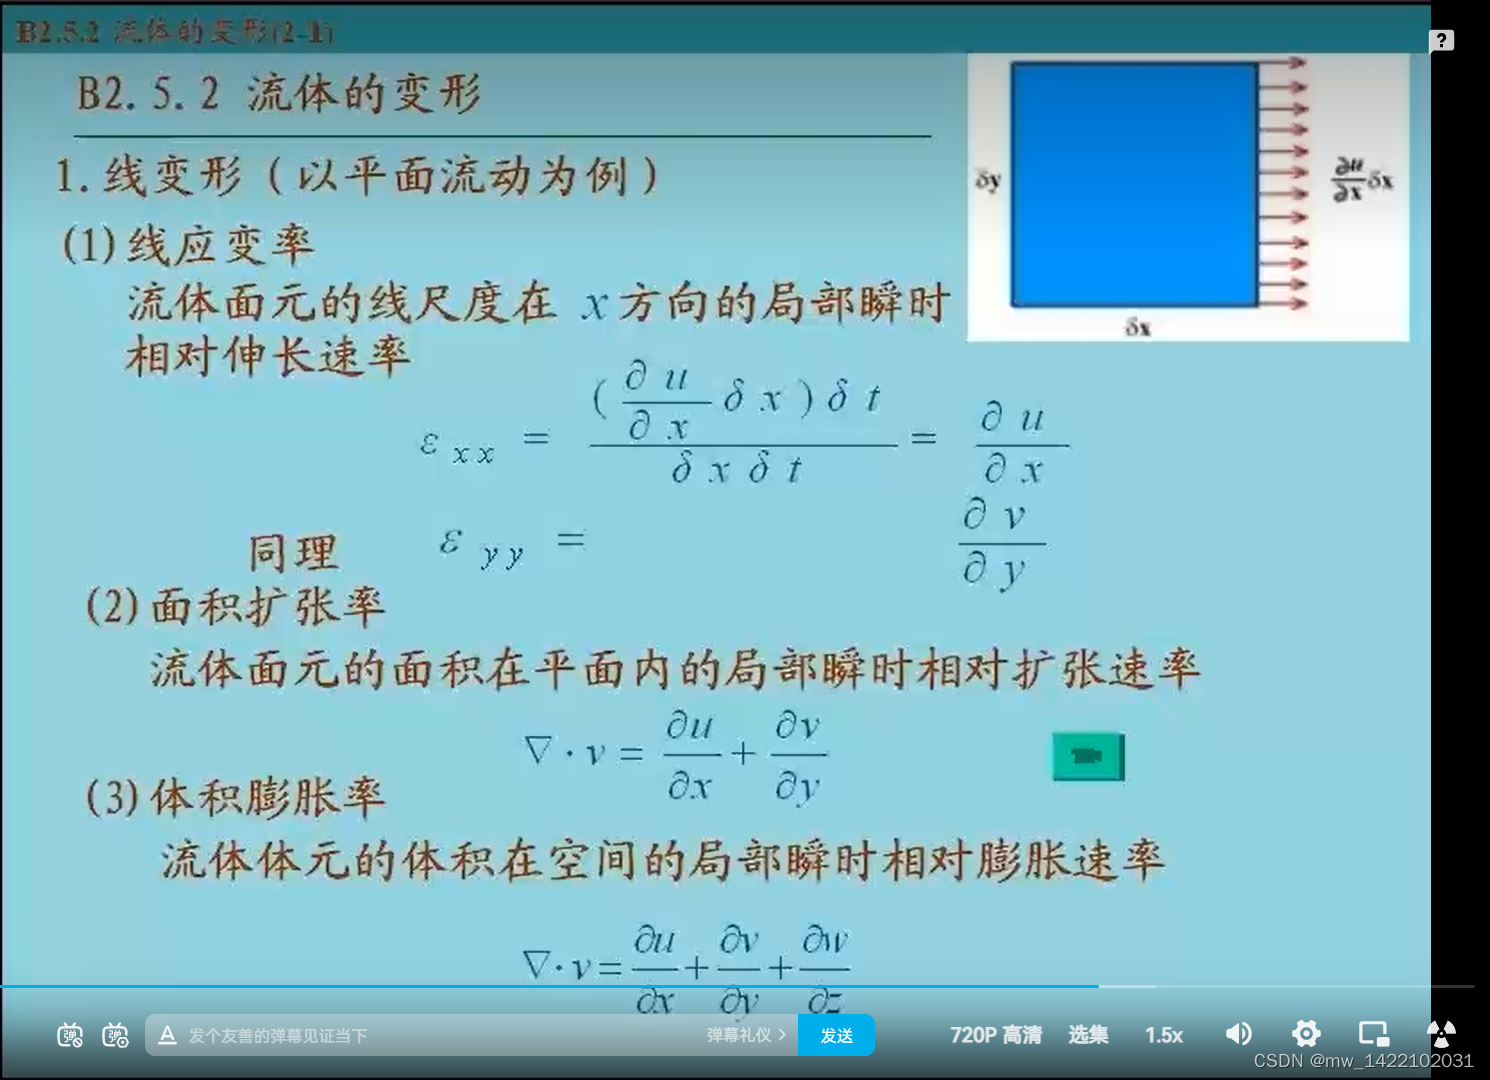 B2.5.2 流体的变形(2-1)
?
B2.5.2 流体的变形
1.线变形（以平面流动为例）
δy
∂u/∂x δx
δx
(1)线应变率
流体面元的线尺度在 x方向的局部瞬时
相对伸长速率
ε xx = (∂u/∂x δx)δt / δxδt = ∂u/∂x
同理 ε yy = ∂v/∂y
(2)面积扩张率
流体面元的面积在平面内的局部瞬时相对扩张速率
∇·v = ∂u/∂x + ∂v/∂y
(3)体积膨胀率
流体体元的体积在空间的局部瞬时相对膨胀速率
∇·v = ∂u/∂x + ∂v/∂y + ∂w/∂z
弹 弹 A 发个友善的弹幕见证当下 弹幕礼仪 > 发送 720P 高清 选集 1.5x
CSDN @mw_1422102031